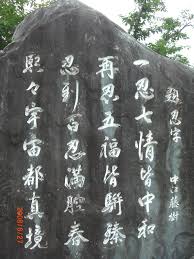 題忍字
中江藤樹
一忍七情皆中和
再忍五福皆駢臻
忍到百忍満腔春
熙々宇宙都真境